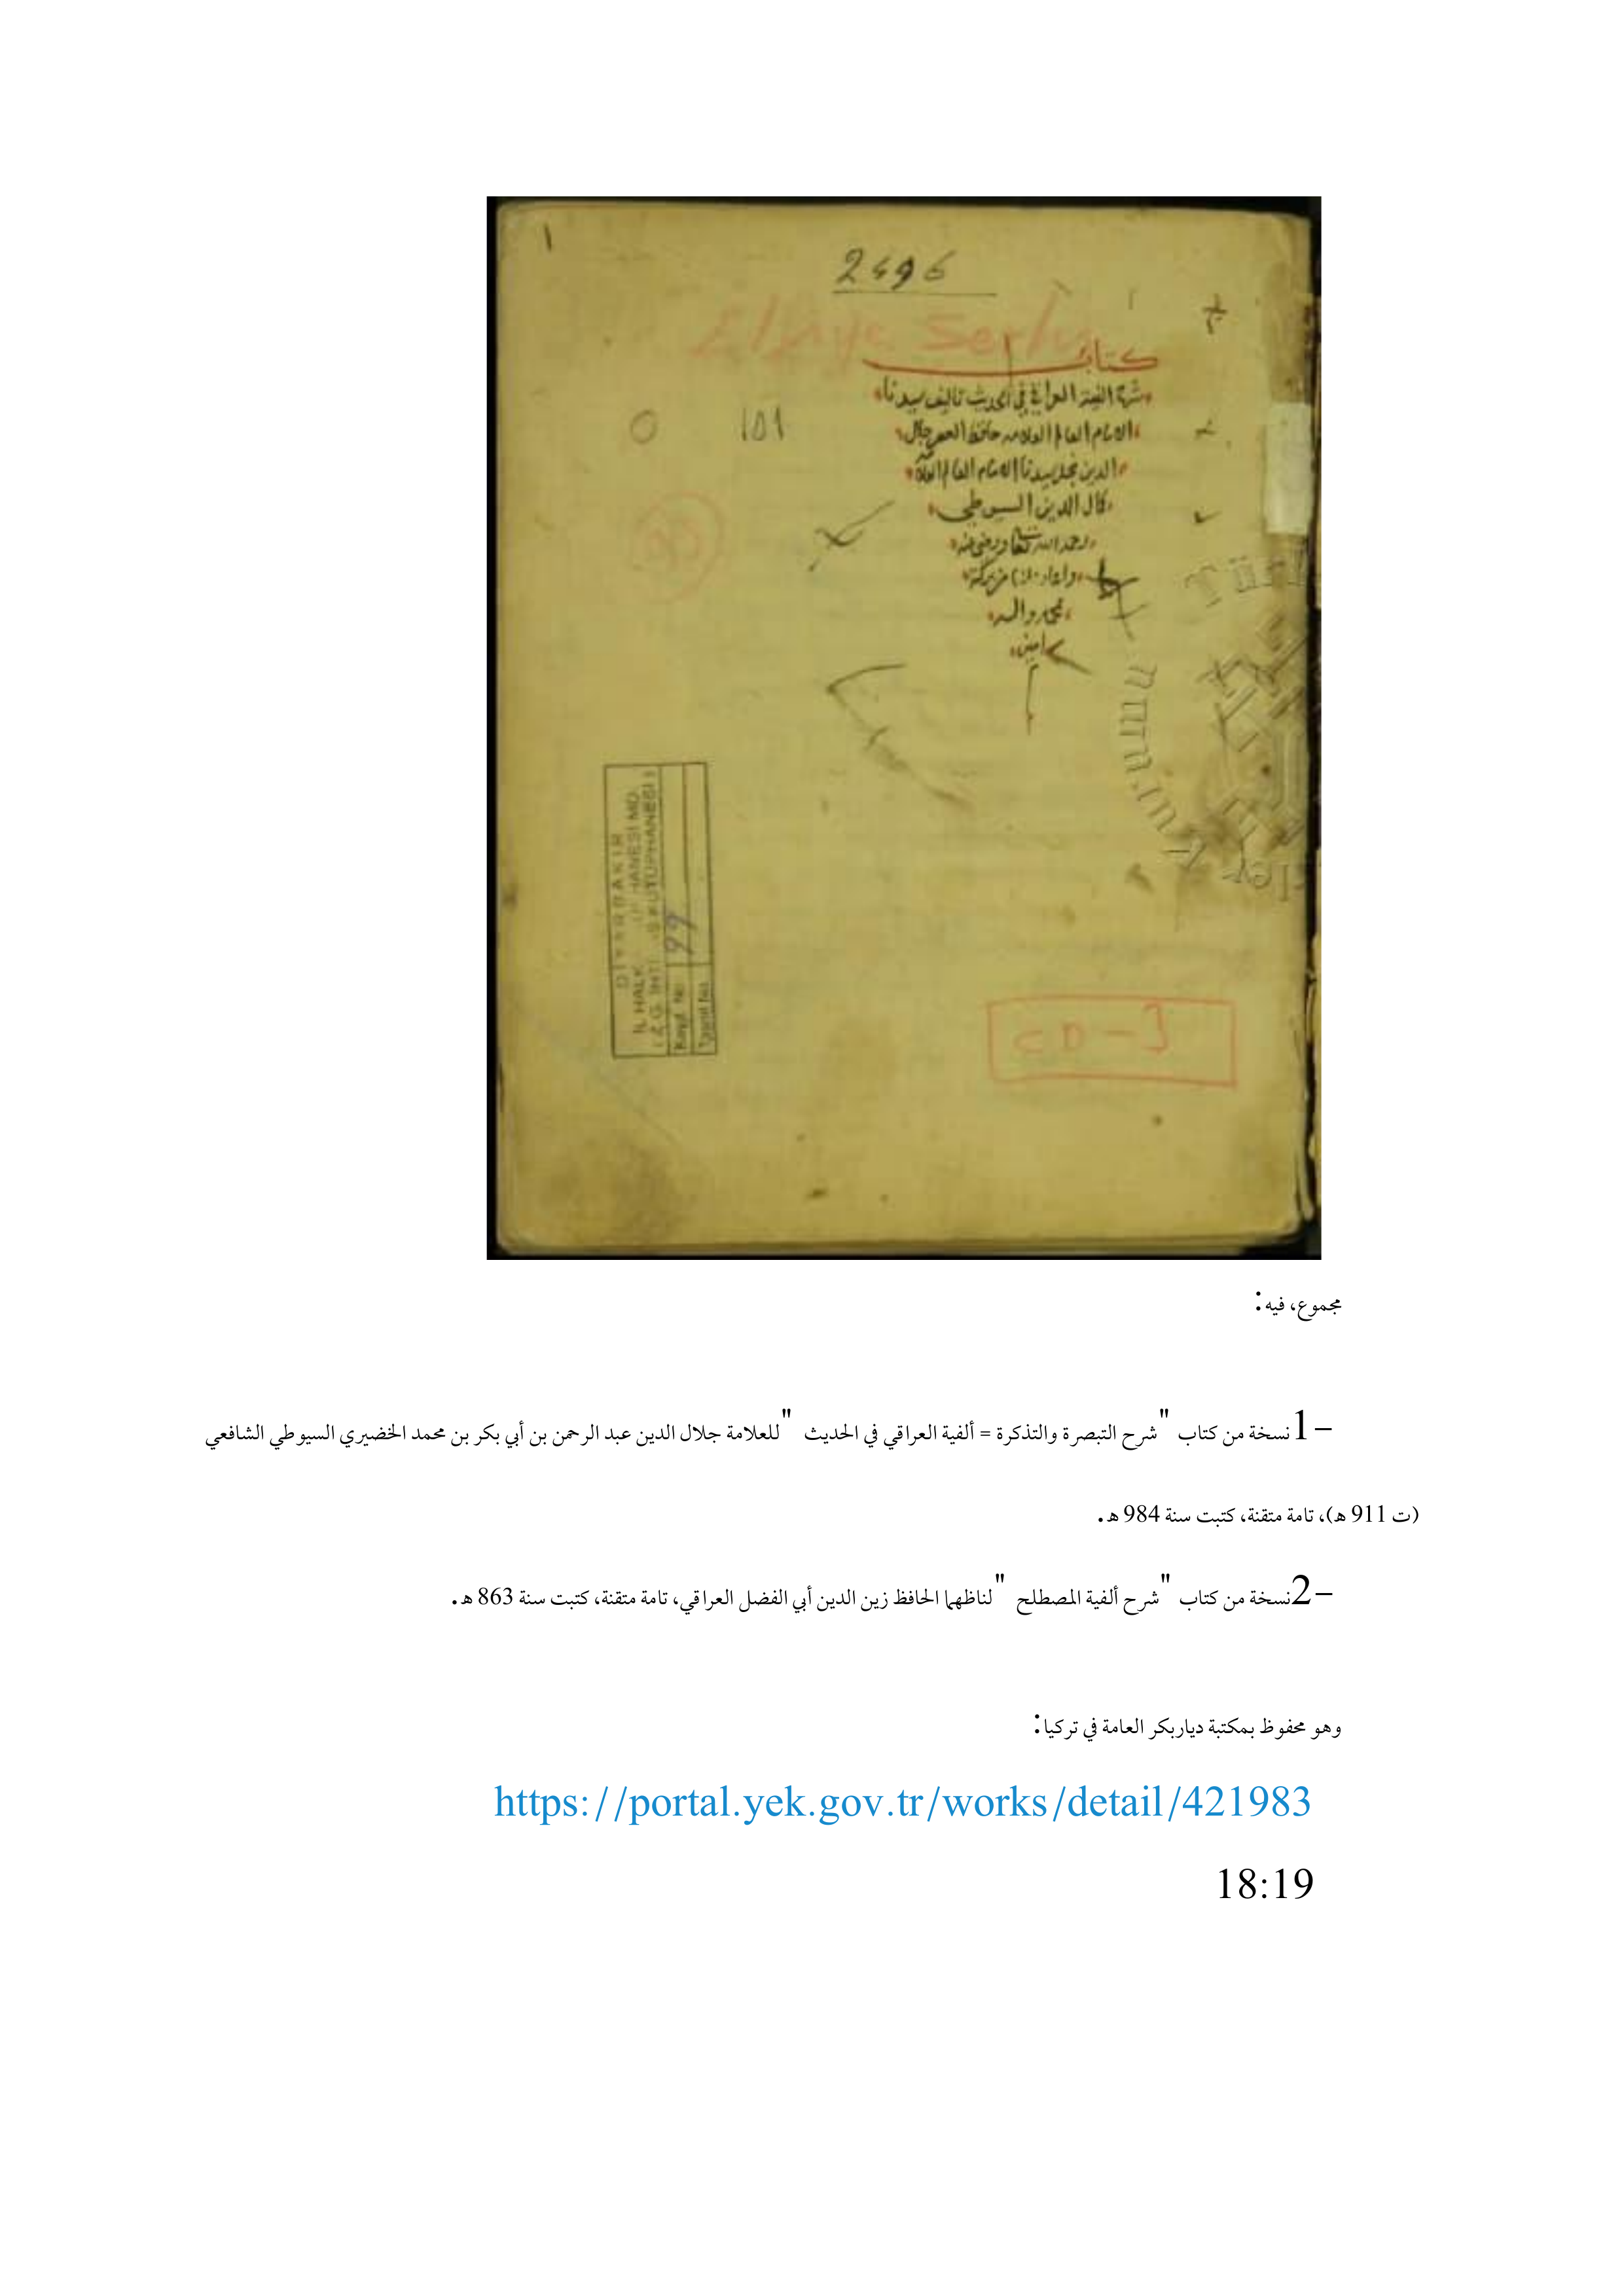 ١
2496
Elfiye Serhu
كتاب
شرح الفية العراقي في الحديث تاليف سيدنا
الامام العالم العلامه حافظ العصر جلال
الدين نجل سيدنا الامام العالم العلامة
كمال الدين السيوطي
رحمه الله تعالى ورضي عنه
واعاد علينا من بركته
بمحمد واله
امين
DIYARBAKIR
IL HALK
Kayıt No 99
Tasnif No.
CD-3
مجموع، فيه:
1- نسخة من كتاب "شرح التبصرة والتذكرة = ألفية العراقي في الحديث" للعلامة جلال الدين عبد الرحمن بن أبي بكر بن محمد الخضيري السيوطي الشافعي
(ت 911 هـ)، تامة متقنة، كتبت سنة 984 هـ.
2- نسخة من كتاب "شرح ألفية المصطلح" لناظهما الحافظ زين الدين أبي الفضل العراقي، تامة متقنة، كتبت سنة 863 هـ.
وهو محفوظ بمكتبة دياربكر العامة في تركيا:
https://portal.yek.gov.tr/works/detail/421983
18:19